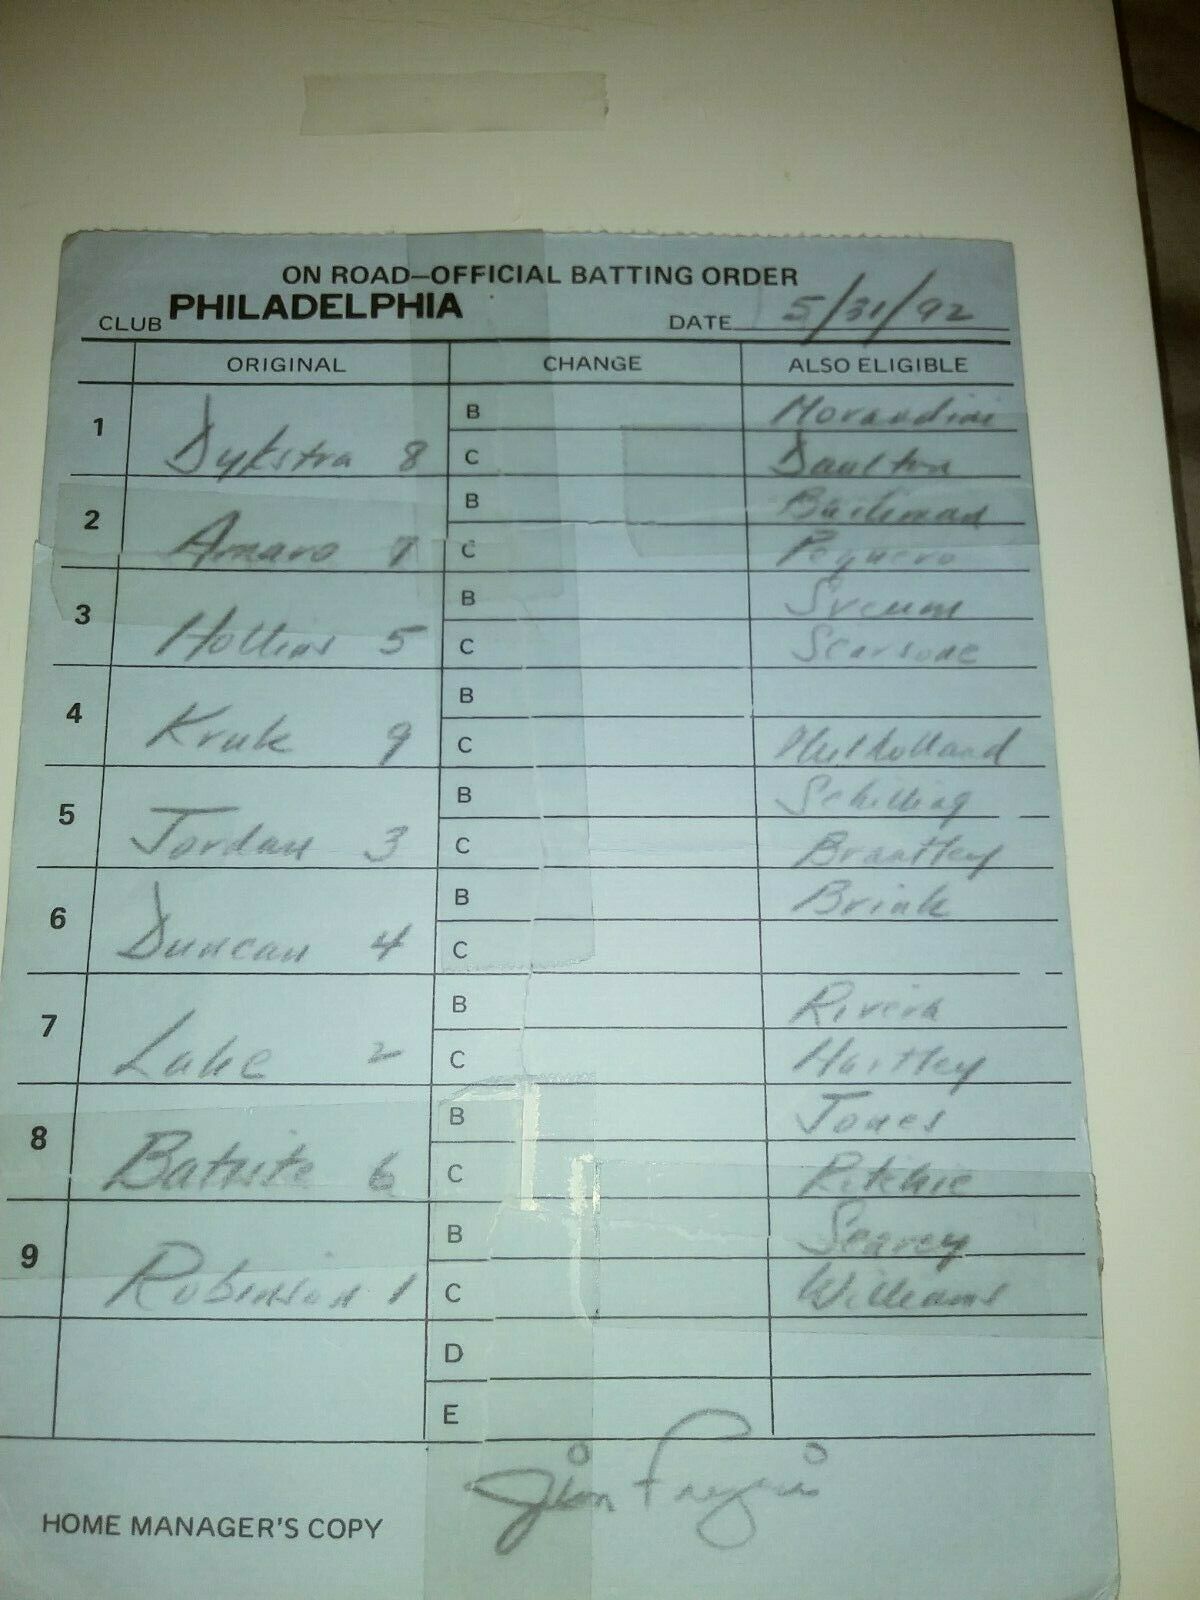 ON ROAD—OFFICIAL BATTING ORDER
CLUB PHILADELPHIA DATE 5/31/92
ORIGINAL CHANGE ALSO ELIGIBLE
1 Dykstra 8 B Morandini
C Daulton
2 Amaro 7 B Backman
C Pequero
3 Hollins 5 B Sveum
C Scarsone
4 Kruk 9 B
C Mulholland
5 Jordan 3 B Schilling
C Brantley
6 Duncan 4 B Brink
C
7 Lake 2 B Rivera
C Hartley
8 Batiste 6 B Jones
C Ritchie
9 Robinson 1 B Searcy
C Williams
D
E
Jim Fregosi
HOME MANAGER'S COPY